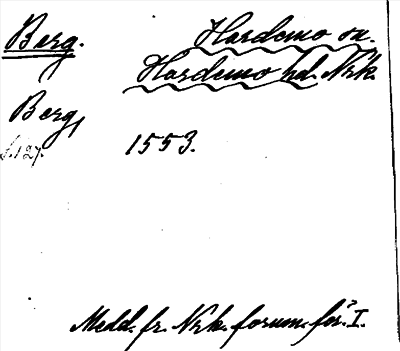 Berg. Hardemo sn.
Hardemo hd. Nrk.
Berg,
s. 127. 1553.
Medd. fr. Nrk. fornm. för. I.